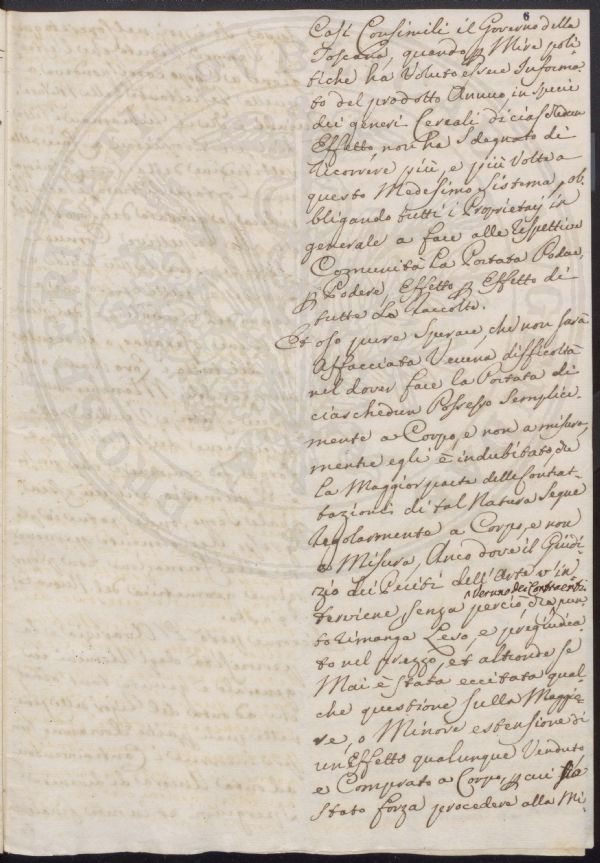 6
Casi Consimili il Governo della
Toscana, quando p Mire poli
tiche ha Voluto essere Informa
to del prodotto Annuo in specie
dei generi Cereali di ciaschedun
Effetto non ha Sdegnato di
ricorrere più, e più Volte a
questo Medesimo Sistema, ob,
bligando tutti i Proprietarj in
generale a fare alle respettive
Comunità La Portata Podere,
p Podere, Effetto p Effetto di
tutte Le Raccolte.
Et oso pure Sperare, che non sarà
Affacciata Veruna difficoltà
nel dover fare la Portata di
ciaschedun Possesso Semplice-
mente a Corpo, e non a misura,
mentre egli è indubitato, che
La Maggior parte delle Contrat-
tazioni di tal Natura Segue
regolarmente a Corpo, e non
a Misura, Anco dove il Giudi-
zio dei Periti dell'Arte v'in
terviene, Senza perciò che pun
Veruno dei Contraenti
to rimanga Leso, e pregiudica
to nel prezzo, et altronde se
Mai è Stata eccitata qual-
che questione Sulla Maggio-
re, o Minore estensione di
un Effetto qualunque Venduto
e Comprato a Corpo, p cui Sia
Stato forza procedere alla Mi-